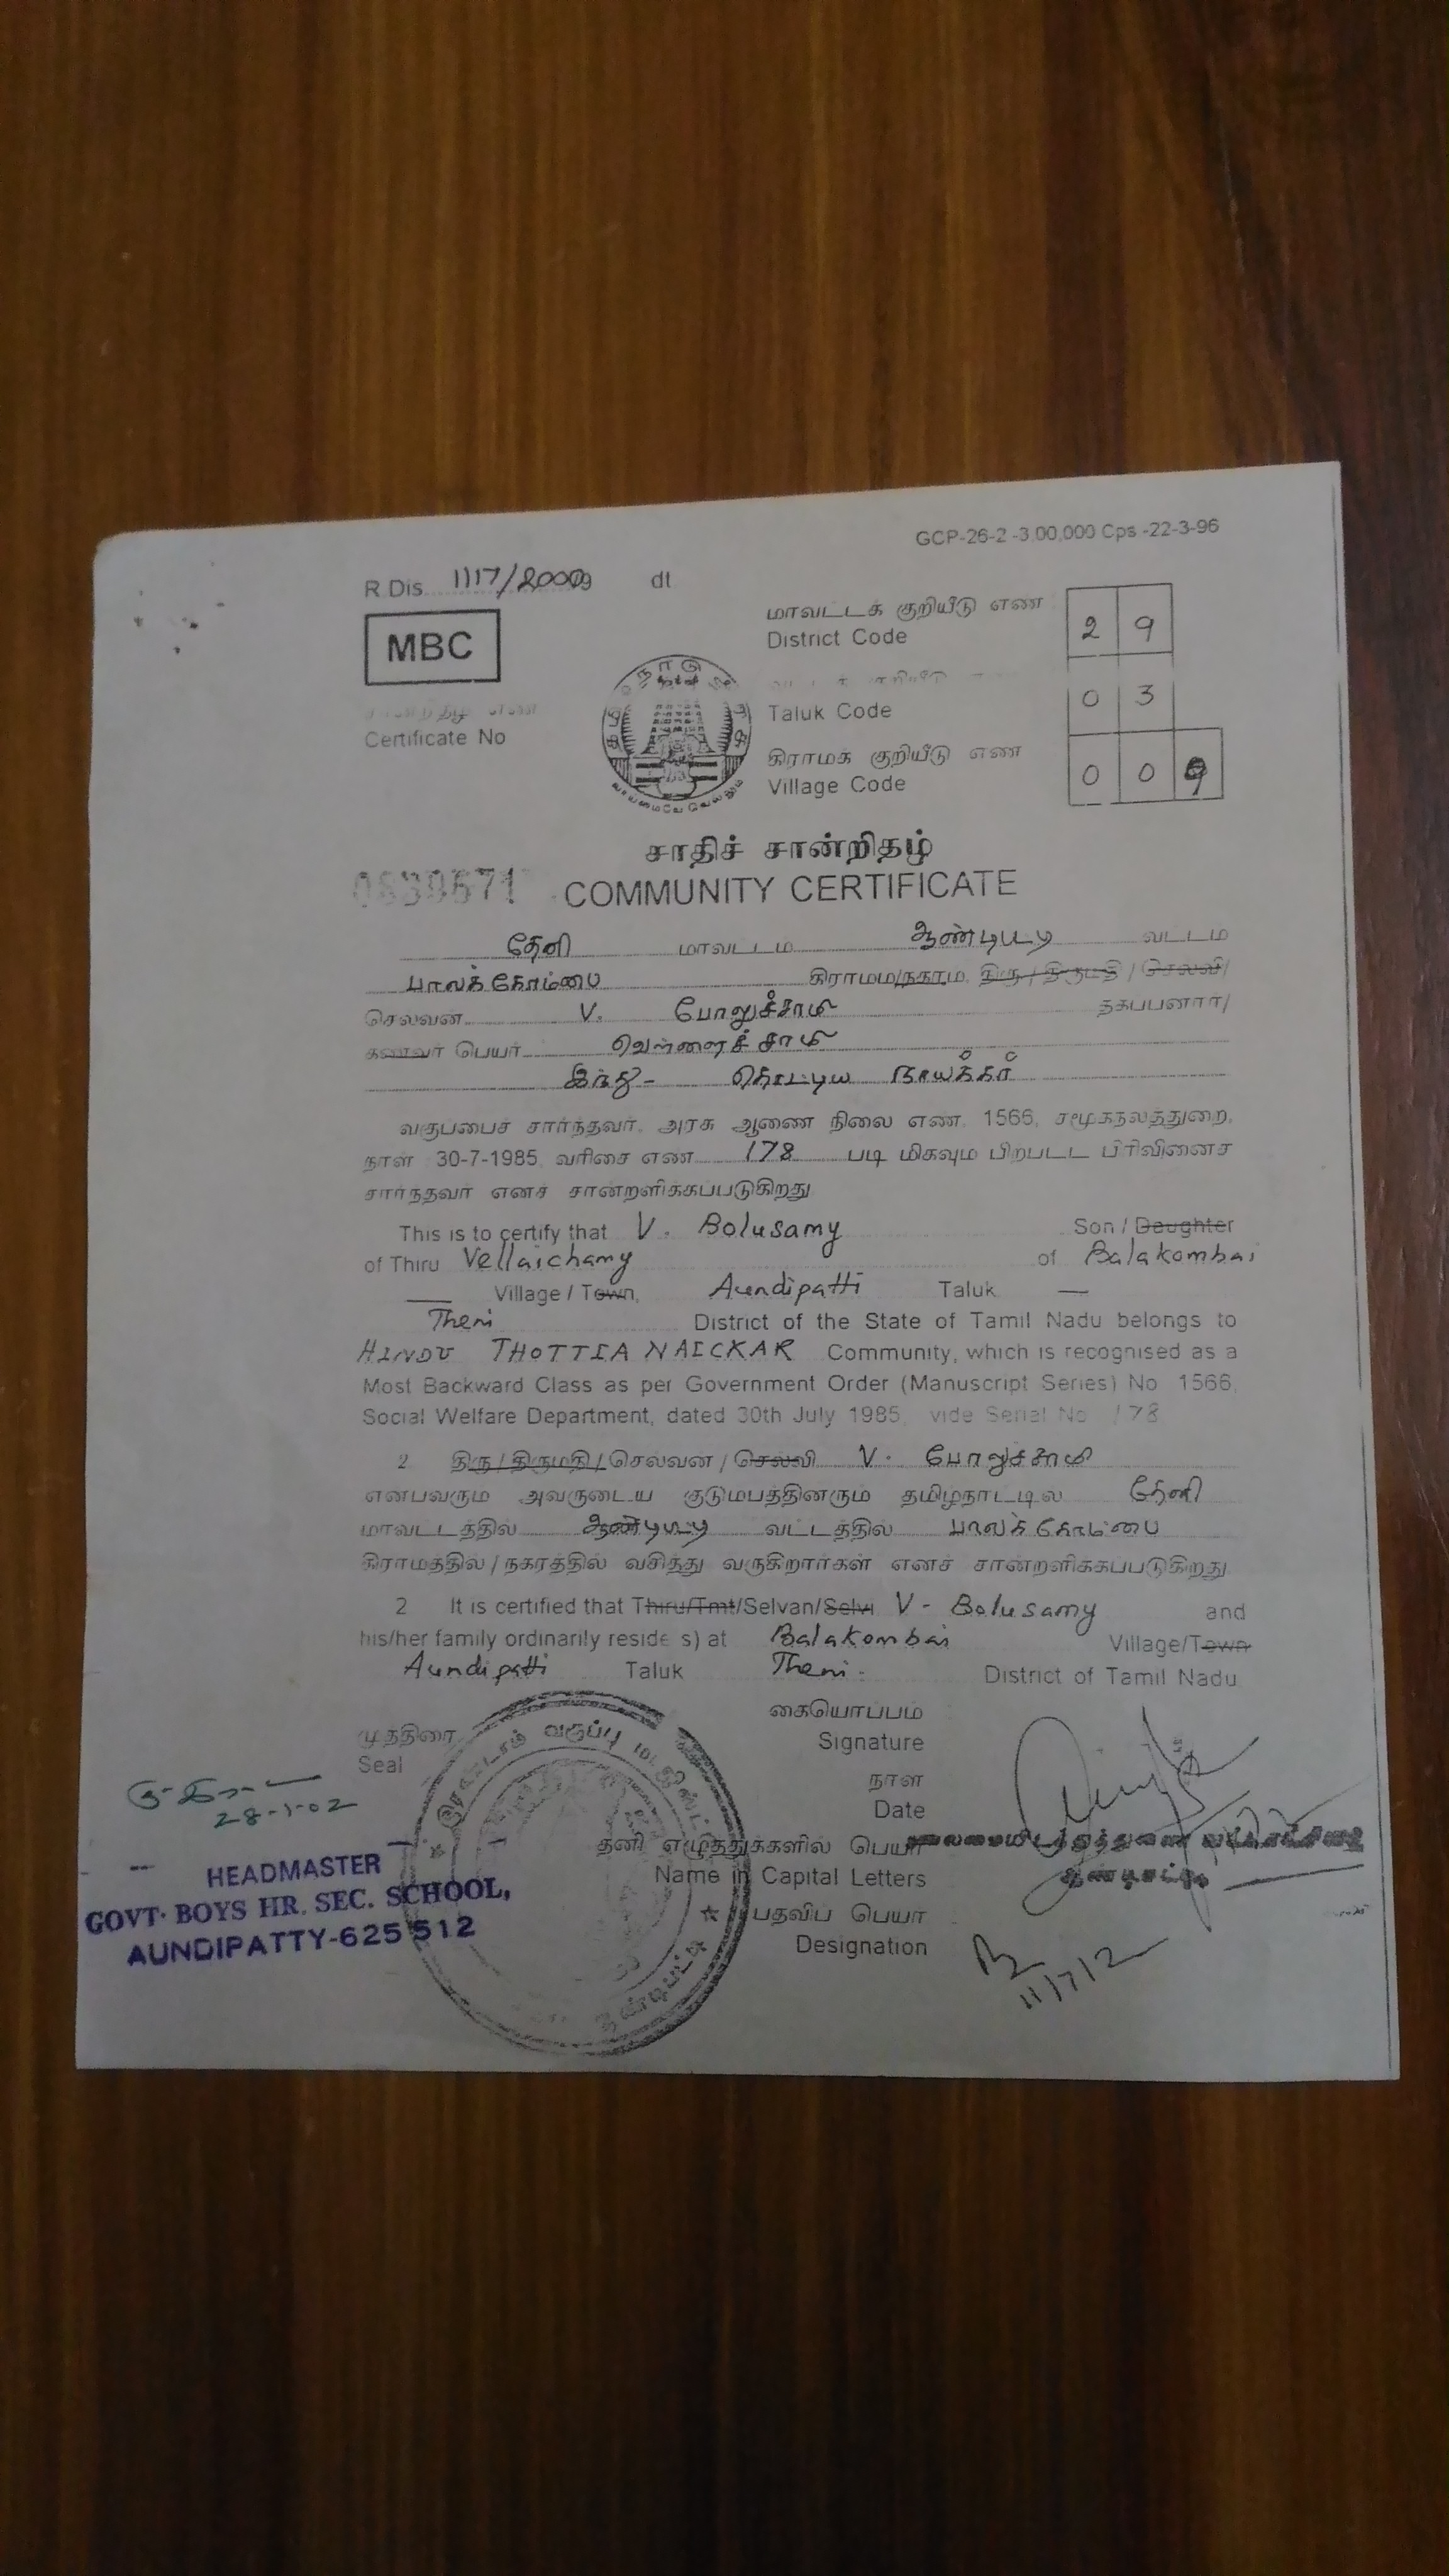 GCP-26-2 -3,00,000 Cps -22-3-96
R.Dis. 1117/2000 dt
MBC
மாவட்டக் குறியீடு எண்
District Code 2 9
Taluk Code 0 3
Certificate No
கிராமக் குறியீடு எண்
Village Code 0 0 9
தமிழ்நாடு
வாய்மையே வெல்லும்
சாதிச் சான்றிதழ்
COMMUNITY CERTIFICATE
தேனி மாவட்டம் ஆண்டிபட்டி வட்டம்
பாலக்கோம்பை கிராமம்/நகரம், திரு / திருமதி / செல்வி/
செல்வன் V. போலுச்சாமி தகப்பனார்/
கணவர் பெயர் வெள்ளைச்சாமி
இந்து - தொட்டிய நாயக்கர்
வகுப்பைச் சார்ந்தவர். அரசு ஆணை நிலை எண். 1566, சமூகநலத்துறை,
நாள் 30-7-1985, வரிசை எண் 178 படி மிகவும் பிற்பட்ட பிரிவினைச்
சார்ந்தவர் எனச் சான்றளிக்கப்படுகிறது
This is to certify that V. Bolusamy Son / Daughter
of Thiru Vellaichamy of Balakombai
Village / Town, Aundipatti Taluk
Theni District of the State of Tamil Nadu belongs to
HINDU THOTTIA NAICKAR Community, which is recognised as a
Most Backward Class as per Government Order (Manuscript Series) No 1566,
Social Welfare Department, dated 30th July 1985, vide Serial No 178
2 திரு / திருமதி / செல்வன் / செல்வி V. போலுச்சாமி
என்பவரும் அவருடைய குடும்பத்தினரும் தமிழ்நாட்டில் தேனி
மாவட்டத்தில் ஆண்டிபட்டி வட்டத்தில் பாலக்கோம்பை
கிராமத்தில் / நகரத்தில் வசித்து வருகிறார்கள் எனச் சான்றளிக்கப்படுகிறது
2 It is certified that Thiru/Tmt/Selvan/Selvi V. Bolusamy and
his/her family ordinarily reside s) at Balakombai Village/Town
Aundipatti Taluk Theni. District of Tamil Nadu
முத்திரை
Seal
கையொப்பம்
Signature
நாள்
Date
28-1-02
தனி எழுத்துக்களில் பெயர்
Name in Capital Letters
பதவிப் பெயர்
Designation
ஆண்டிபட்டி
HEADMASTER
GOVT. BOYS HR. SEC. SCHOOL,
AUNDIPATTY-625 512
11/7/2